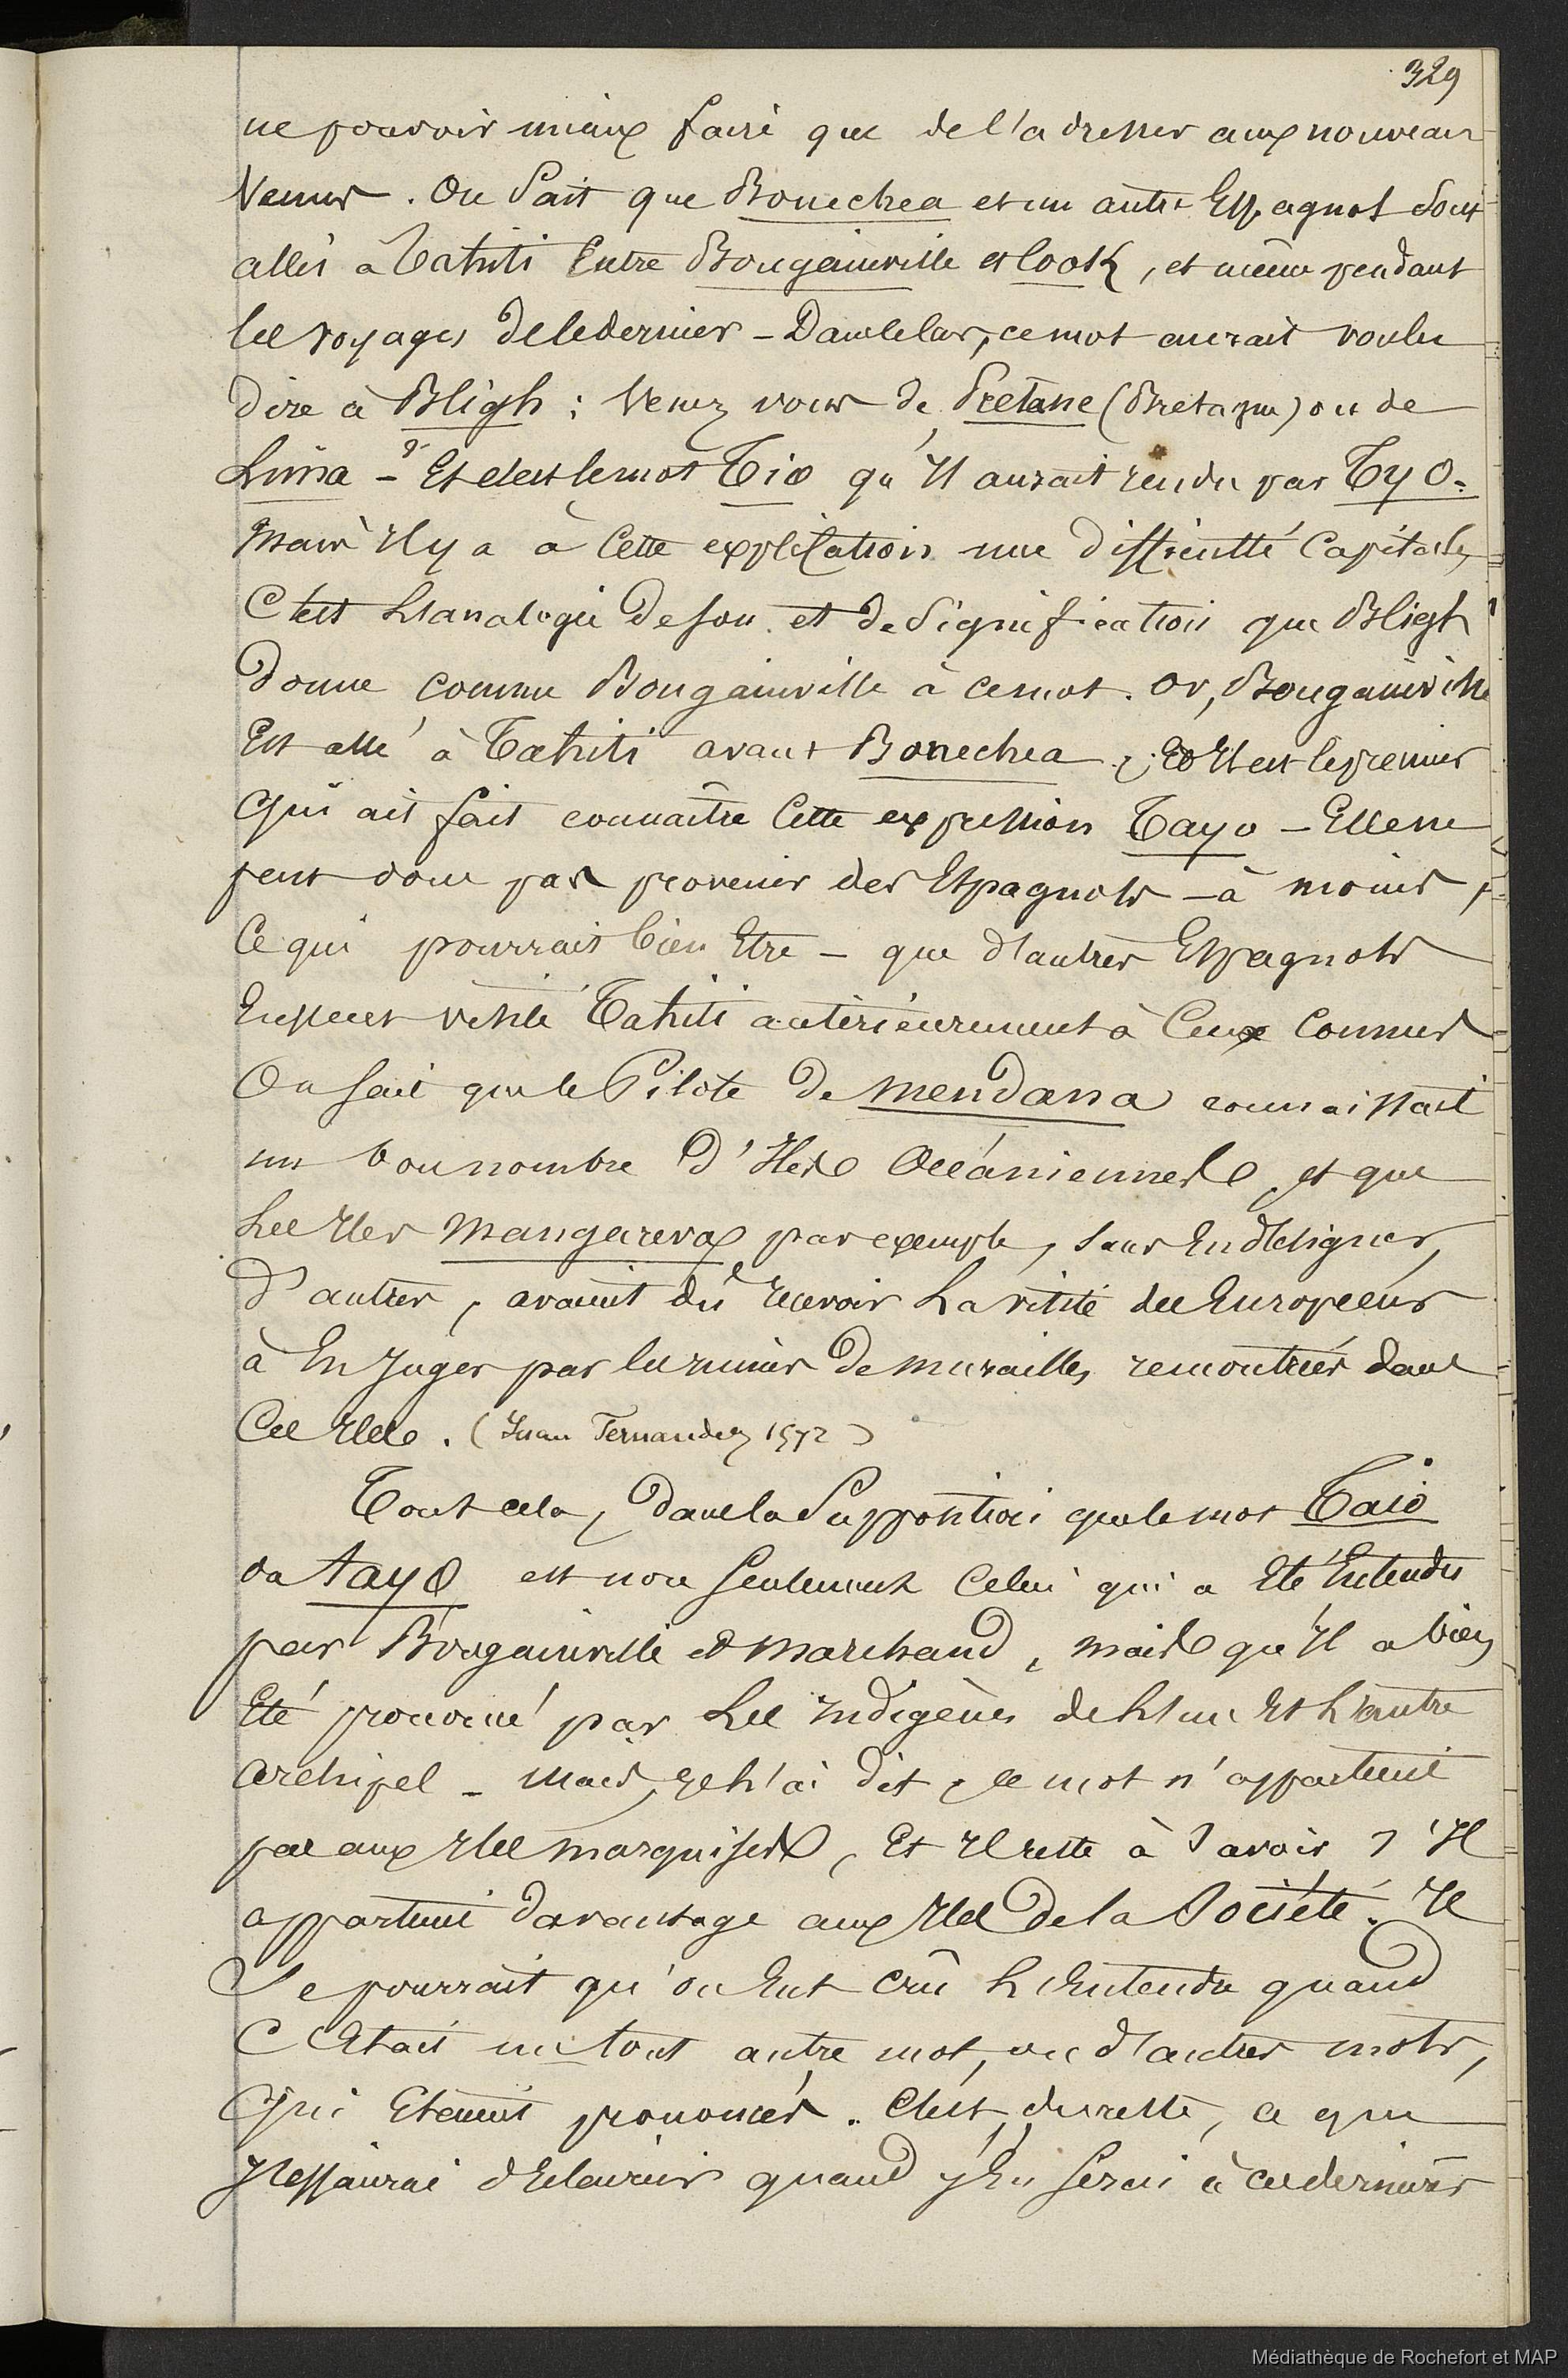 329
ne pouvoir mieux faire que de l'adresser aux nouveaux
venus. On sait que Bonechea et un autre Espagnol sont
allés à Tahiti entre Bougainville et Cook, et même pendant
les voyages de ce dernier - Dans ce cas, ce mot aurait voulu
dire à Bligh : Venez vous de Pretane (Bretagne) ou de
Lima - ? Et c'est le mot Tio qu'il aurait rendu par Tyo.
Mais il y a à cette explication une difficulté capitale,
C'est l'analogie de son et de signification que Bligh
donne comme Bougainville à ce mot. Or, Bougainville
est allé à Tahiti avant Bonechea, et il est le premier
qui ait fait connaître cette expression Tayo - Elle ne
peut donc pas provenir des Espagnols - à moins,
ce qui pourrait bien être - que d'autres Espagnols
eussent visité Tahiti antérieurement à ceux connus
On sait que le Pilote de Mendana connaissait
un bon nombre d'Iles Océaniennes, et que
les Iles Mangareva par exemple, sans en désigner
d'autres, avaient dû recevoir la visite des Européens
à en juger par les ruines de murailles rencontrées dans
ces Iles. (Juan Fernandez 1572)
Tout cela, dans la supposition que le mot Taio
ou tayo est non seulement celui qui a été entendu
par Bougainville et Marchand, mais qu'il a bien
été prononcé par les indigènes de l'un et l'autre
archipel - Mais, je l'ai dit, ce mot n'appartient
pas aux Iles Marquises, et il reste à savoir s'il
appartient davantage aux Iles de la Société. Il
se pourrait qu'on eut crû l'entendre quand
c'était un tout autre mot, ou d'autres mots,
qui étaient prononcés. C'est, du reste, ce que
j'essaierai d'éclaircir quand j'en serai à ces dernières
Médiathèque de Rochefort et MAP